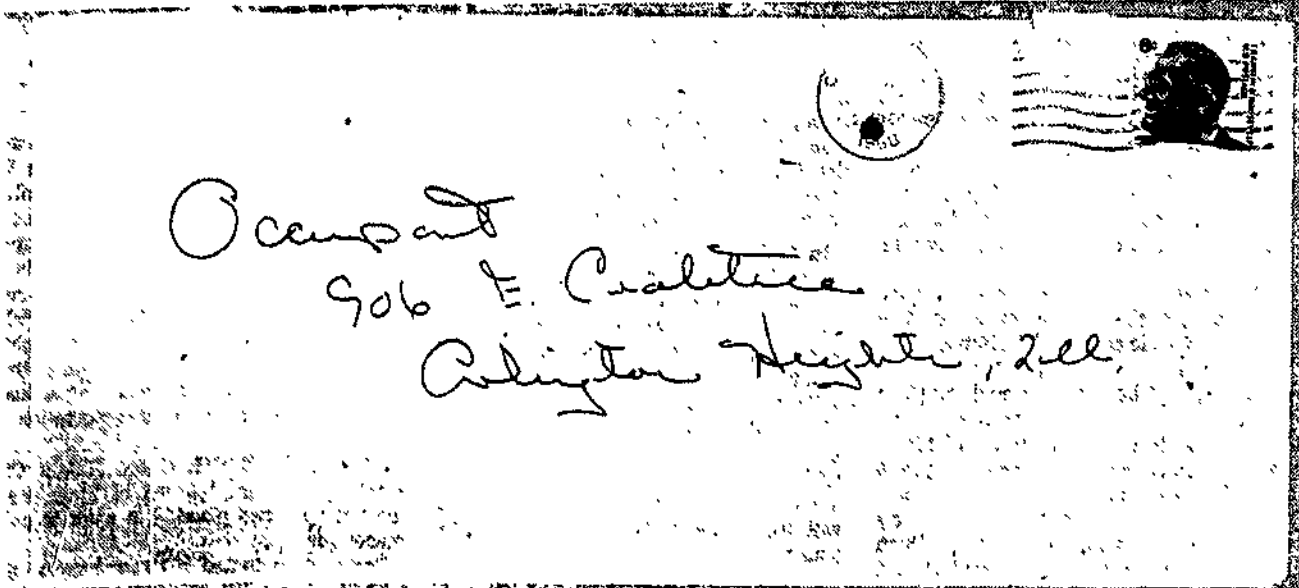 Occupant
906 E.
Arlington Heights, Ill.